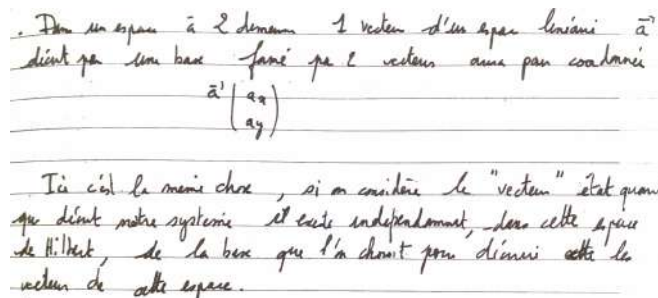 . Dans un espace à 2 dimens 1 vecteur d'un espace linéaire a⃗
décrit par une base formé par 2 vecteurs aura pour coordonnée
a⃗ | ax
ay )
Ici c'est la meme chose, si on considère le "vecteur" état quan
qui décrit notre systeme il existe independamment, dans cette espace
de Hilbert, de la base que l'on choisit pour décrire les
vecteur de cette espace.